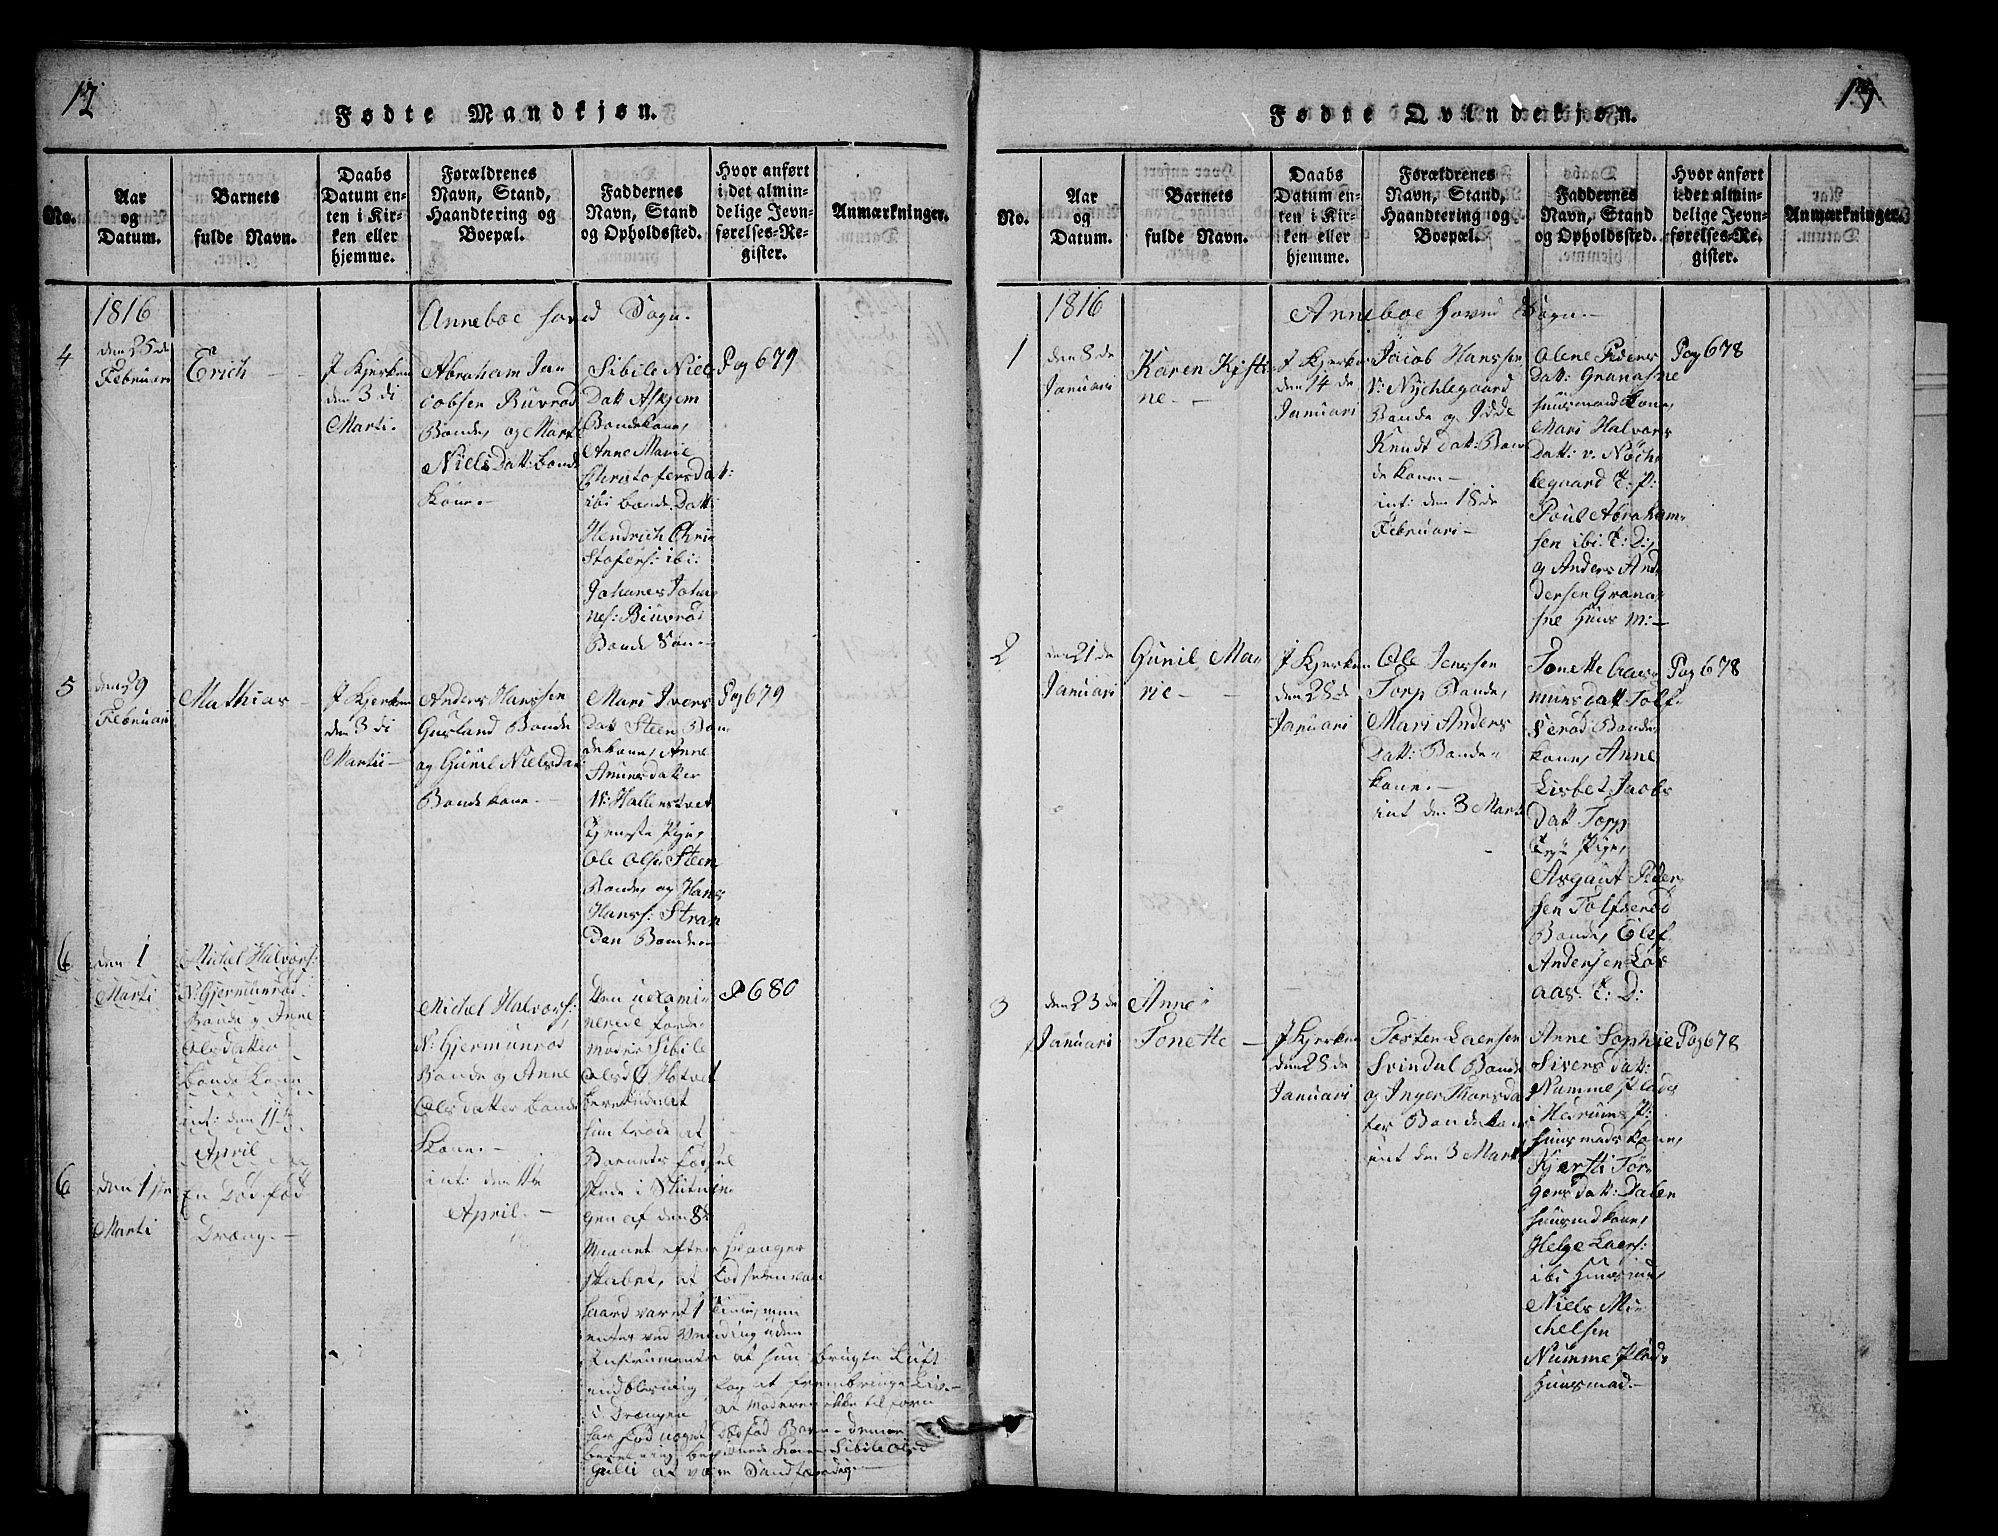 12
Fødte Mandkjøn.
No.
Aar
og
Datum.
Barnets
fulde Navn.
Daabs
Datum en-
ten i Kir-
ken eller
hjemme.
Forældrenes
Navn, Stand,
Haandtering og
Boepæl.
Faddernes
Navn, Stand
og Opholdssted.
Hvor anført
i det almin-
delige Jevn-
førelses-Re-
gister.
Anmærkninger.
1816
Anneboe Hoved Sogn.
4
den 25 de
Februari
Erich
J Kjerken
den 3 di
Marti.
Abraham Ja-
cobsen Buvrød
Bonde, og Mari
Niels Datt: bonde
Kone.
Sibile Niels
Datt Askjem
Bondekone,
Anne Marie
Christofersdat:
ibi bonde Datt:
Hendrich Chri-
stofers: ibi:
Johanes Joha-
nes: Biuvrød
Bonde Søn
Pag 679
5
den 29
Februari
Mathias
J Kjerken
den 3 di
Martii
Anders Hanssen
Gusland Bonde
og Gunil Nielsda
Bondekone.
Mari Ivers
Datt Steen Bon-
dekone, Anne
Amunsdatter
N: Hallenstvet
Tjeneste Pige,
Ole Olss Steen
Bonde, og Hans
Hanss: Stran
den Bonde
Pag 679
6
den 1
Marti
Michel Halvors:
N: Gjermunrød
Bonde og Anne
Olsdatter
bonde Kone
int: den 11te
April
Michel Halvors:
N: Gjermunrød
Bonde og Anne
Olsdatter bonde
Kone.
int: den 11te
April.
6
den 1ste
Marti
En Død fød
Dræng.
Den uexami-
nerede Jorde-
moder Sibile
Olsd Hotvet
beretter at
hun troede at
Barnets fødsel
skede i Slutnin-
gen af den 8de
Maanet efter Svanger
skabet, at Fødselen var
haard varet 1 Time, men
endte ved Vending uden
Instrumenter at hun brugte Luft
indblesning for at frembringe Liv
i Drængen at Moderen ikke til forn
har fød noget Dødfød Barn
P 680
17
Fødte Qvindekjøn.
No.
Aar
og
Datum.
Barnets
fulde Navn.
Daabs
Datum en-
ten i Kir-
ken eller
hjemme.
Forældrenes
Navn, Stand,
Haandtering og
Boepæl.
Faddernes
Navn, Stand
og Opholdssted.
Hvor anført
i det almin-
delige Jevn-
førelses-Re-
gister.
Anmærkninger.
1816
Anneboe Hoved Sogn.
1
den 8 de
Januari
Karen Kjsti
ne
J Kjerken
den 14 de
Januari
Jacob Hanssen
V: Nychlegaard
Bonde og Idde
Knudt Datt: Bon
dekone
int: den 18 de
Februari
Olene Peders
Datt: Granasne
Huusmandskone,
Mari Halvors
Datt: v. Nøchle
legaard T: P:
Poul Abraham-
sen ibi: T: D:,
og Anders And-
dersen Grana-
sne Huus M:
Pag 678
2
den 21 de
Januari
Gunil Ma-
rie
J Kjerken
den 28 de
Januari
Ole Jenssen
Torp Bonde,
Mari Anders
Datt: Bonde
kone.
int den 3 Marti
Tonette Aas-
munsdatt: Tolf
serød Bonde,
kone, Anne
Lisbet Jacobs
Datt Torp
Pige,
Asgaut Peder
sen Tolfserød
Bonde, Elef
Andersen Løv
aas: T: D:
Pag 678
3
den 23 de
Januari
Anne
Tonette
J Kjerken
den 28 de
Januari
Tosten Laersen
Svindal Bonde
og Inger Thorsda
ter Bondekone
int den 3 Marti
Anne Sophie
Siversdatt:
Numme Plads
i Hedrums P:
Huusmands kone,
Kjersti Tor-
gers datt: Dalen
Huusmd kone,
Helge Laers:
ibi Huusmd,
Niels Mi-
chelsen
Numme Plads
Huusmad.
Pag 678